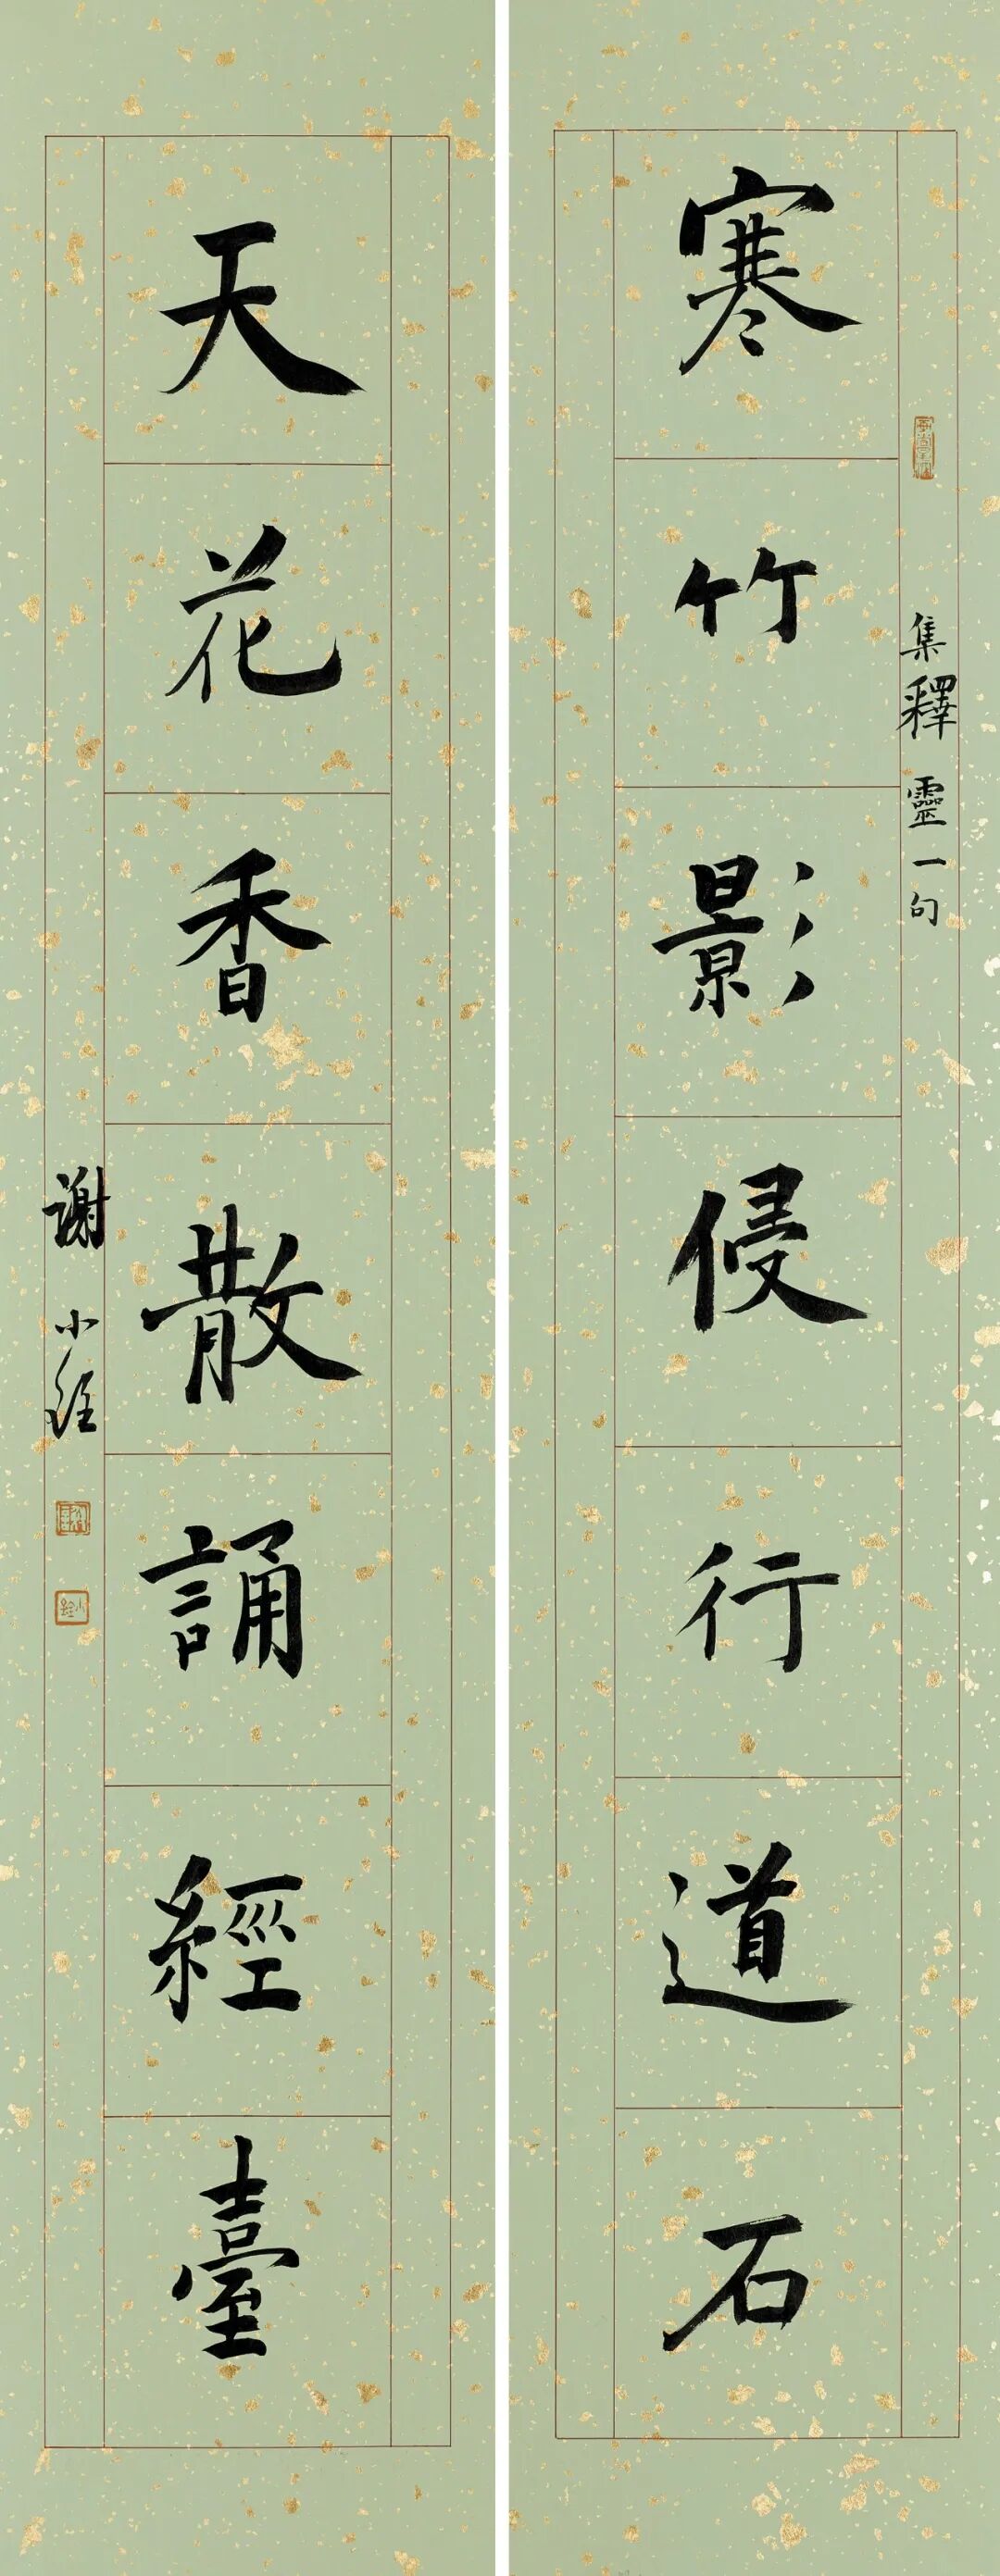 寒竹影侵行道石
集釋靈一句
天花香散誦經臺
謝小銓